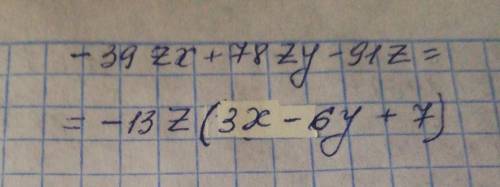 - 39 zx + 78 zy - 91 z =
= -13 z (3x - 6y + 7)